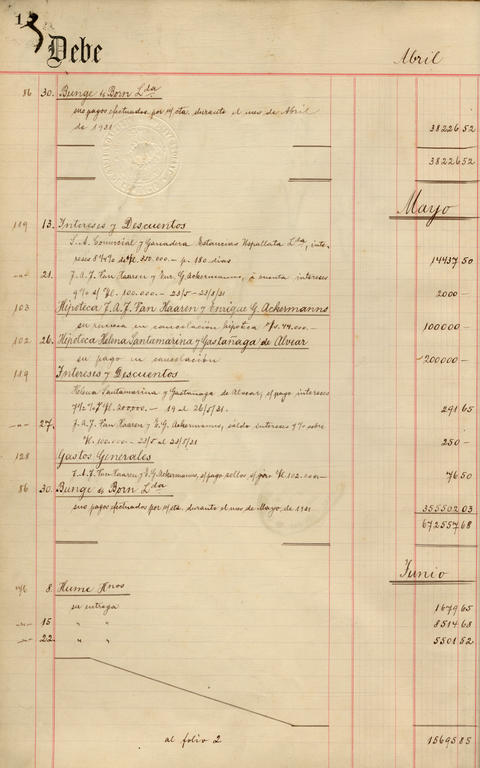 13
Debe
Abril
86 30. Bunge & Born Lda
sus pagos efectuados por n/cta. durante el mes de Abril
de 1931 38226 52
38226 52
Mayo
119 13. Intereses y Descuentos
S.A. Comercial y Ganadera Estancias Uspallata Lda, inte-
reses 8¼% de $ 350.000.- p. 180 dias 14437 50
21. J.A.J. Van Haaren y Enr. G. Ackermanns, a cuenta intereses
9% s/ $ 100.000.- 23/5 - 23/8/31 2000 -
103 Hipoteca J.A.J. Van Haaren y Enrique G. Ackermanns
su remesa en cancelación hipoteca 100000 -
102 26. Hipoteca Helena Santamarina y Gastañaga de Alvear
su pago en cancelación 200000 -
119 Intereses y Descuentos
Helena Santamarina y Gastañaga de Alvear, s/pago intereses
7½% $ 200.000.- 19 al 26/5/31. 291 65
27. J.A.J. Van Haaren y E.G. Ackermanns, saldo intereses 9% sobre
$ 100.000 - 23/5 al 23/8/31 250 -
128 Gastos Generales
J.A.J. Van Haaren y E.G. Ackermanns, s/pago sellos s/giro $ 102.000.- 76 50
86 30. Bunge & Born Lda
sus pagos efectuados por n/cta. durante el mes de Mayo, de 1931 355502 03
672557 68
Junio
8. Hume Hnos
su entrega 1679 65
15 " " 8514 68
22. " " 5501 52
al folio 2 15695 85